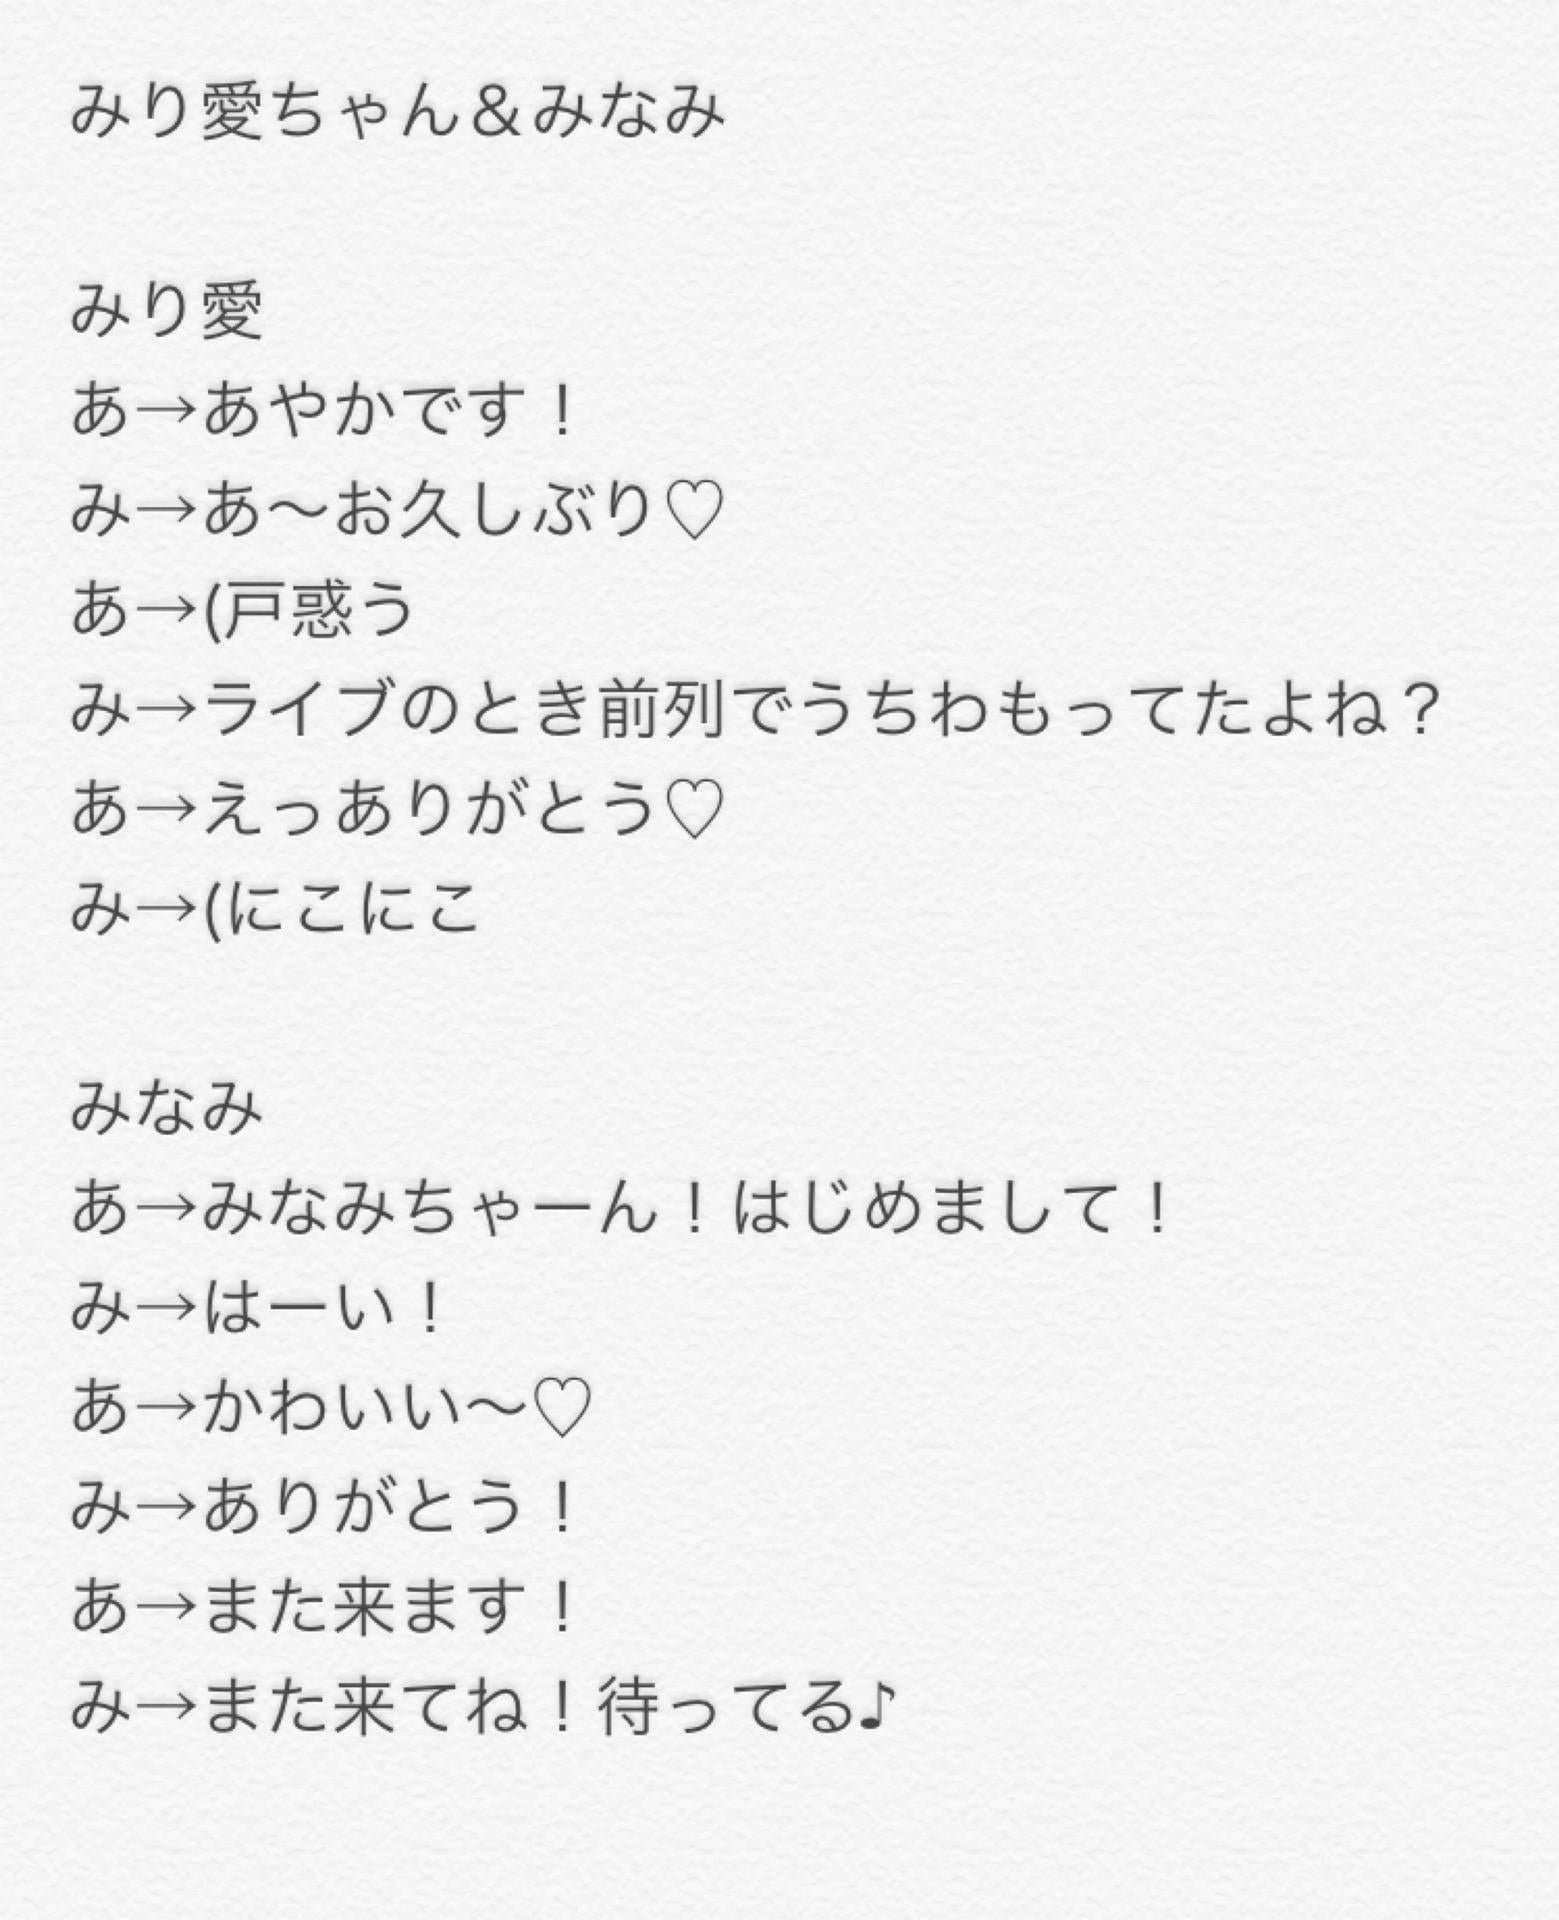 みり愛ちゃん＆みなみ
みり愛
あ→あやかです！
み→あ〜お久しぶり♡
あ→(戸惑う
み→ライブのとき前列でうちわもってたよね？
あ→えっありがとう♡
み→(にこにこ
みなみ
あ→みなみちゃーん！はじめまして！
み→はーい！
あ→かわいい〜♡
み→ありがとう！
あ→また来ます！
み→また来てね！待ってる♪